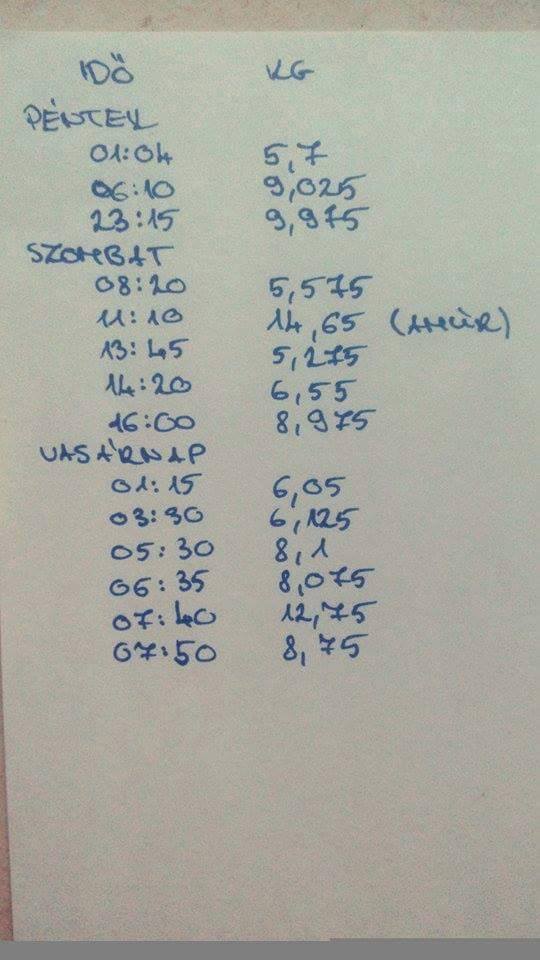 IDŐ KG
PÉNTEK
01:04 5,7
06:10 9,025
23:15 9,975
SZOMBAT
08:20 5,575
11:10 14,65 (AMÚR)
13:45 5,275
14:20 6,55
16:00 8,975
VASÁRNAP
01:15 6,05
03:30 6,125
05:30 8,1
06:35 8,075
07:40 12,75
07:50 8,75